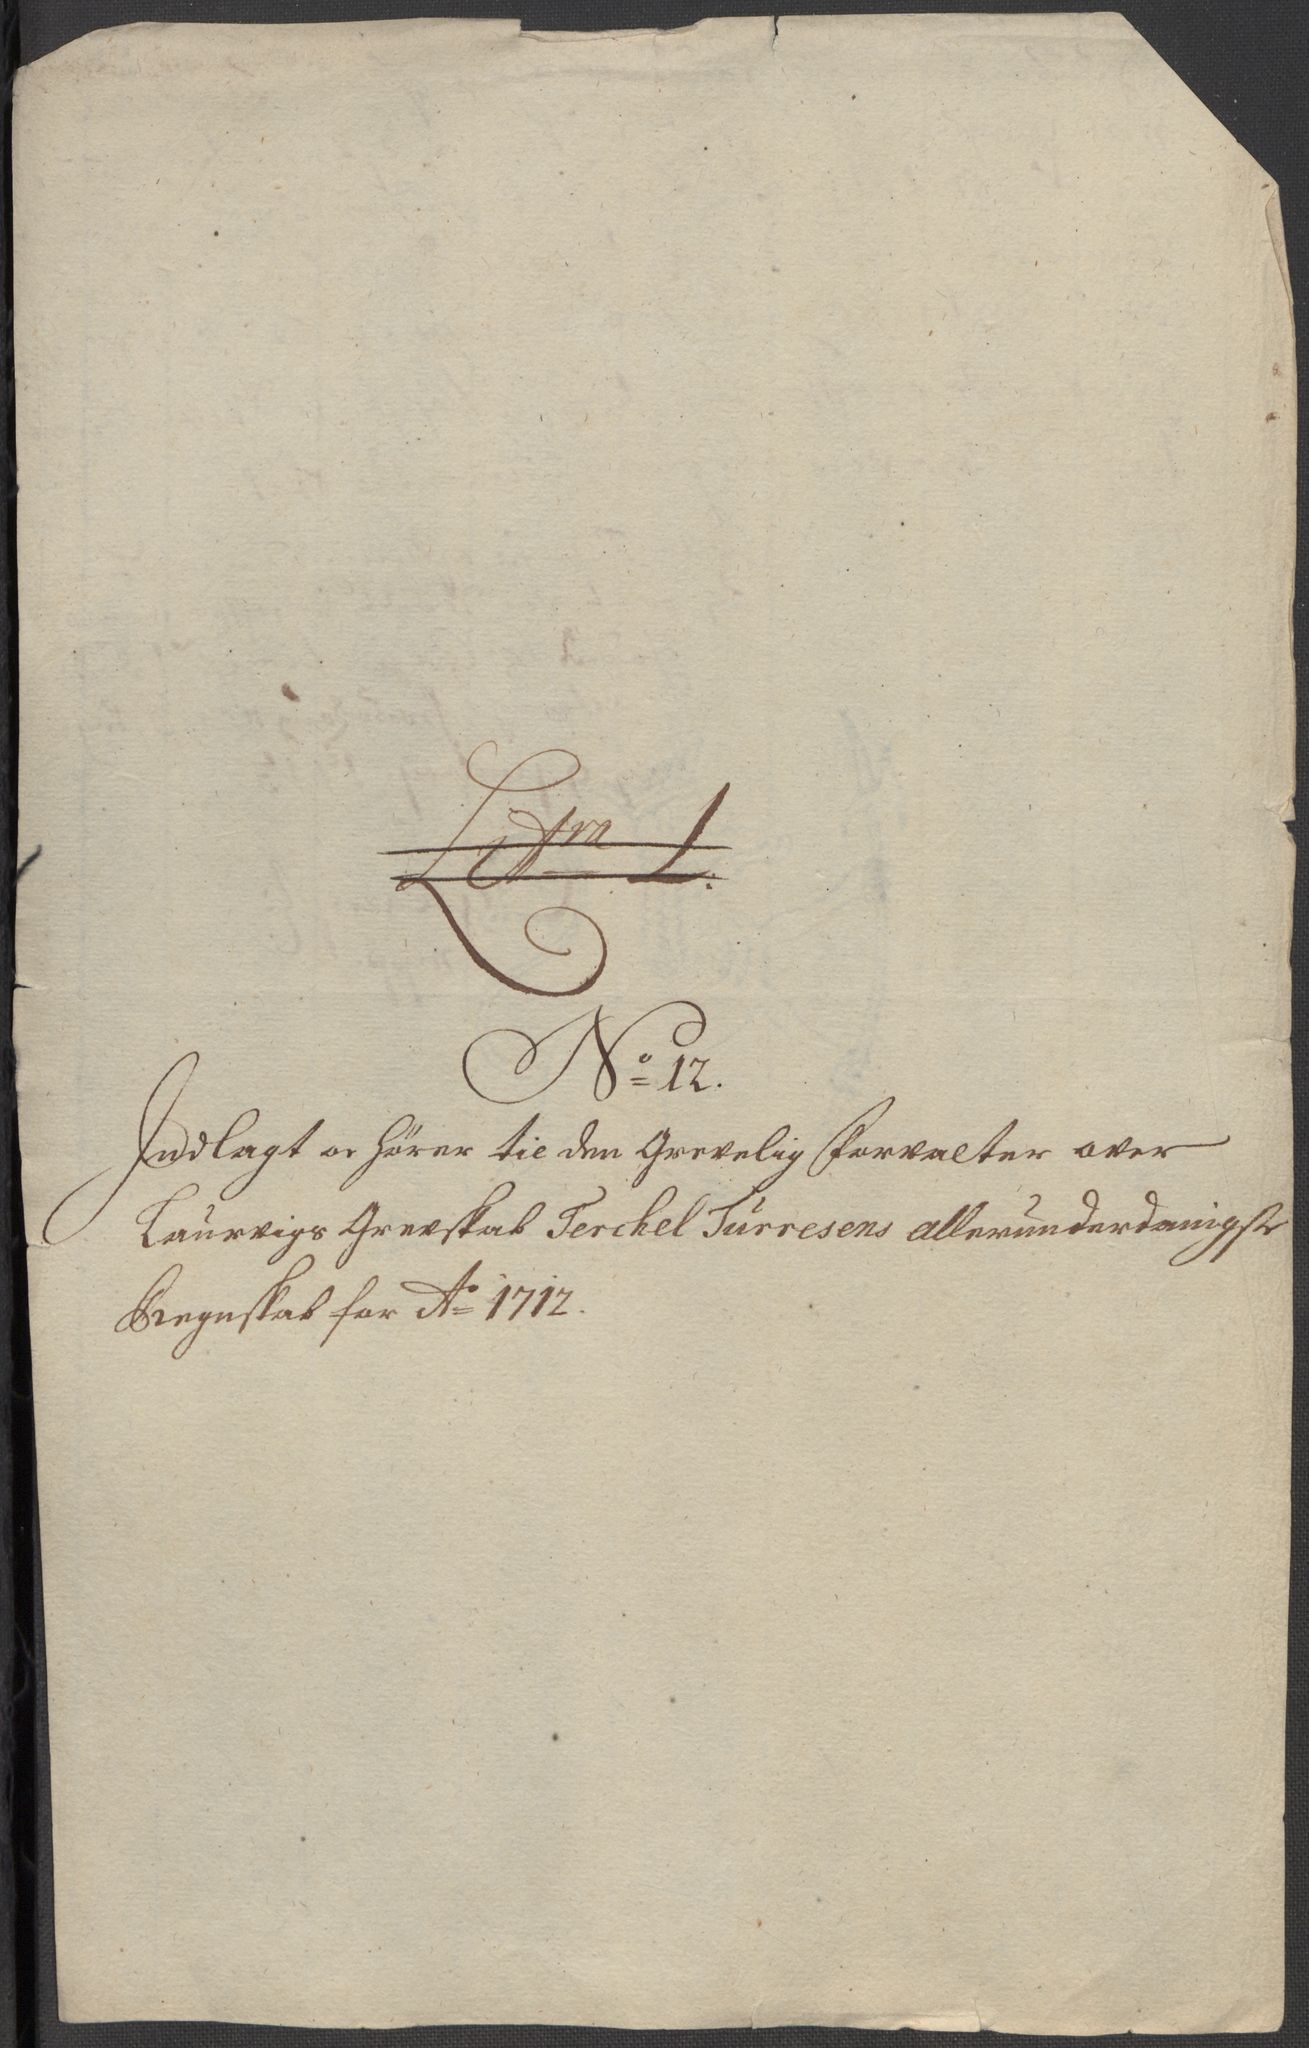 Litra L.
No 12.
Indlagt oc hörer til den Grevelig Forvalter over
Laurvigs Grevskab Terchel Turresens allerunderdanigste
Regnskab for Ao 1712.